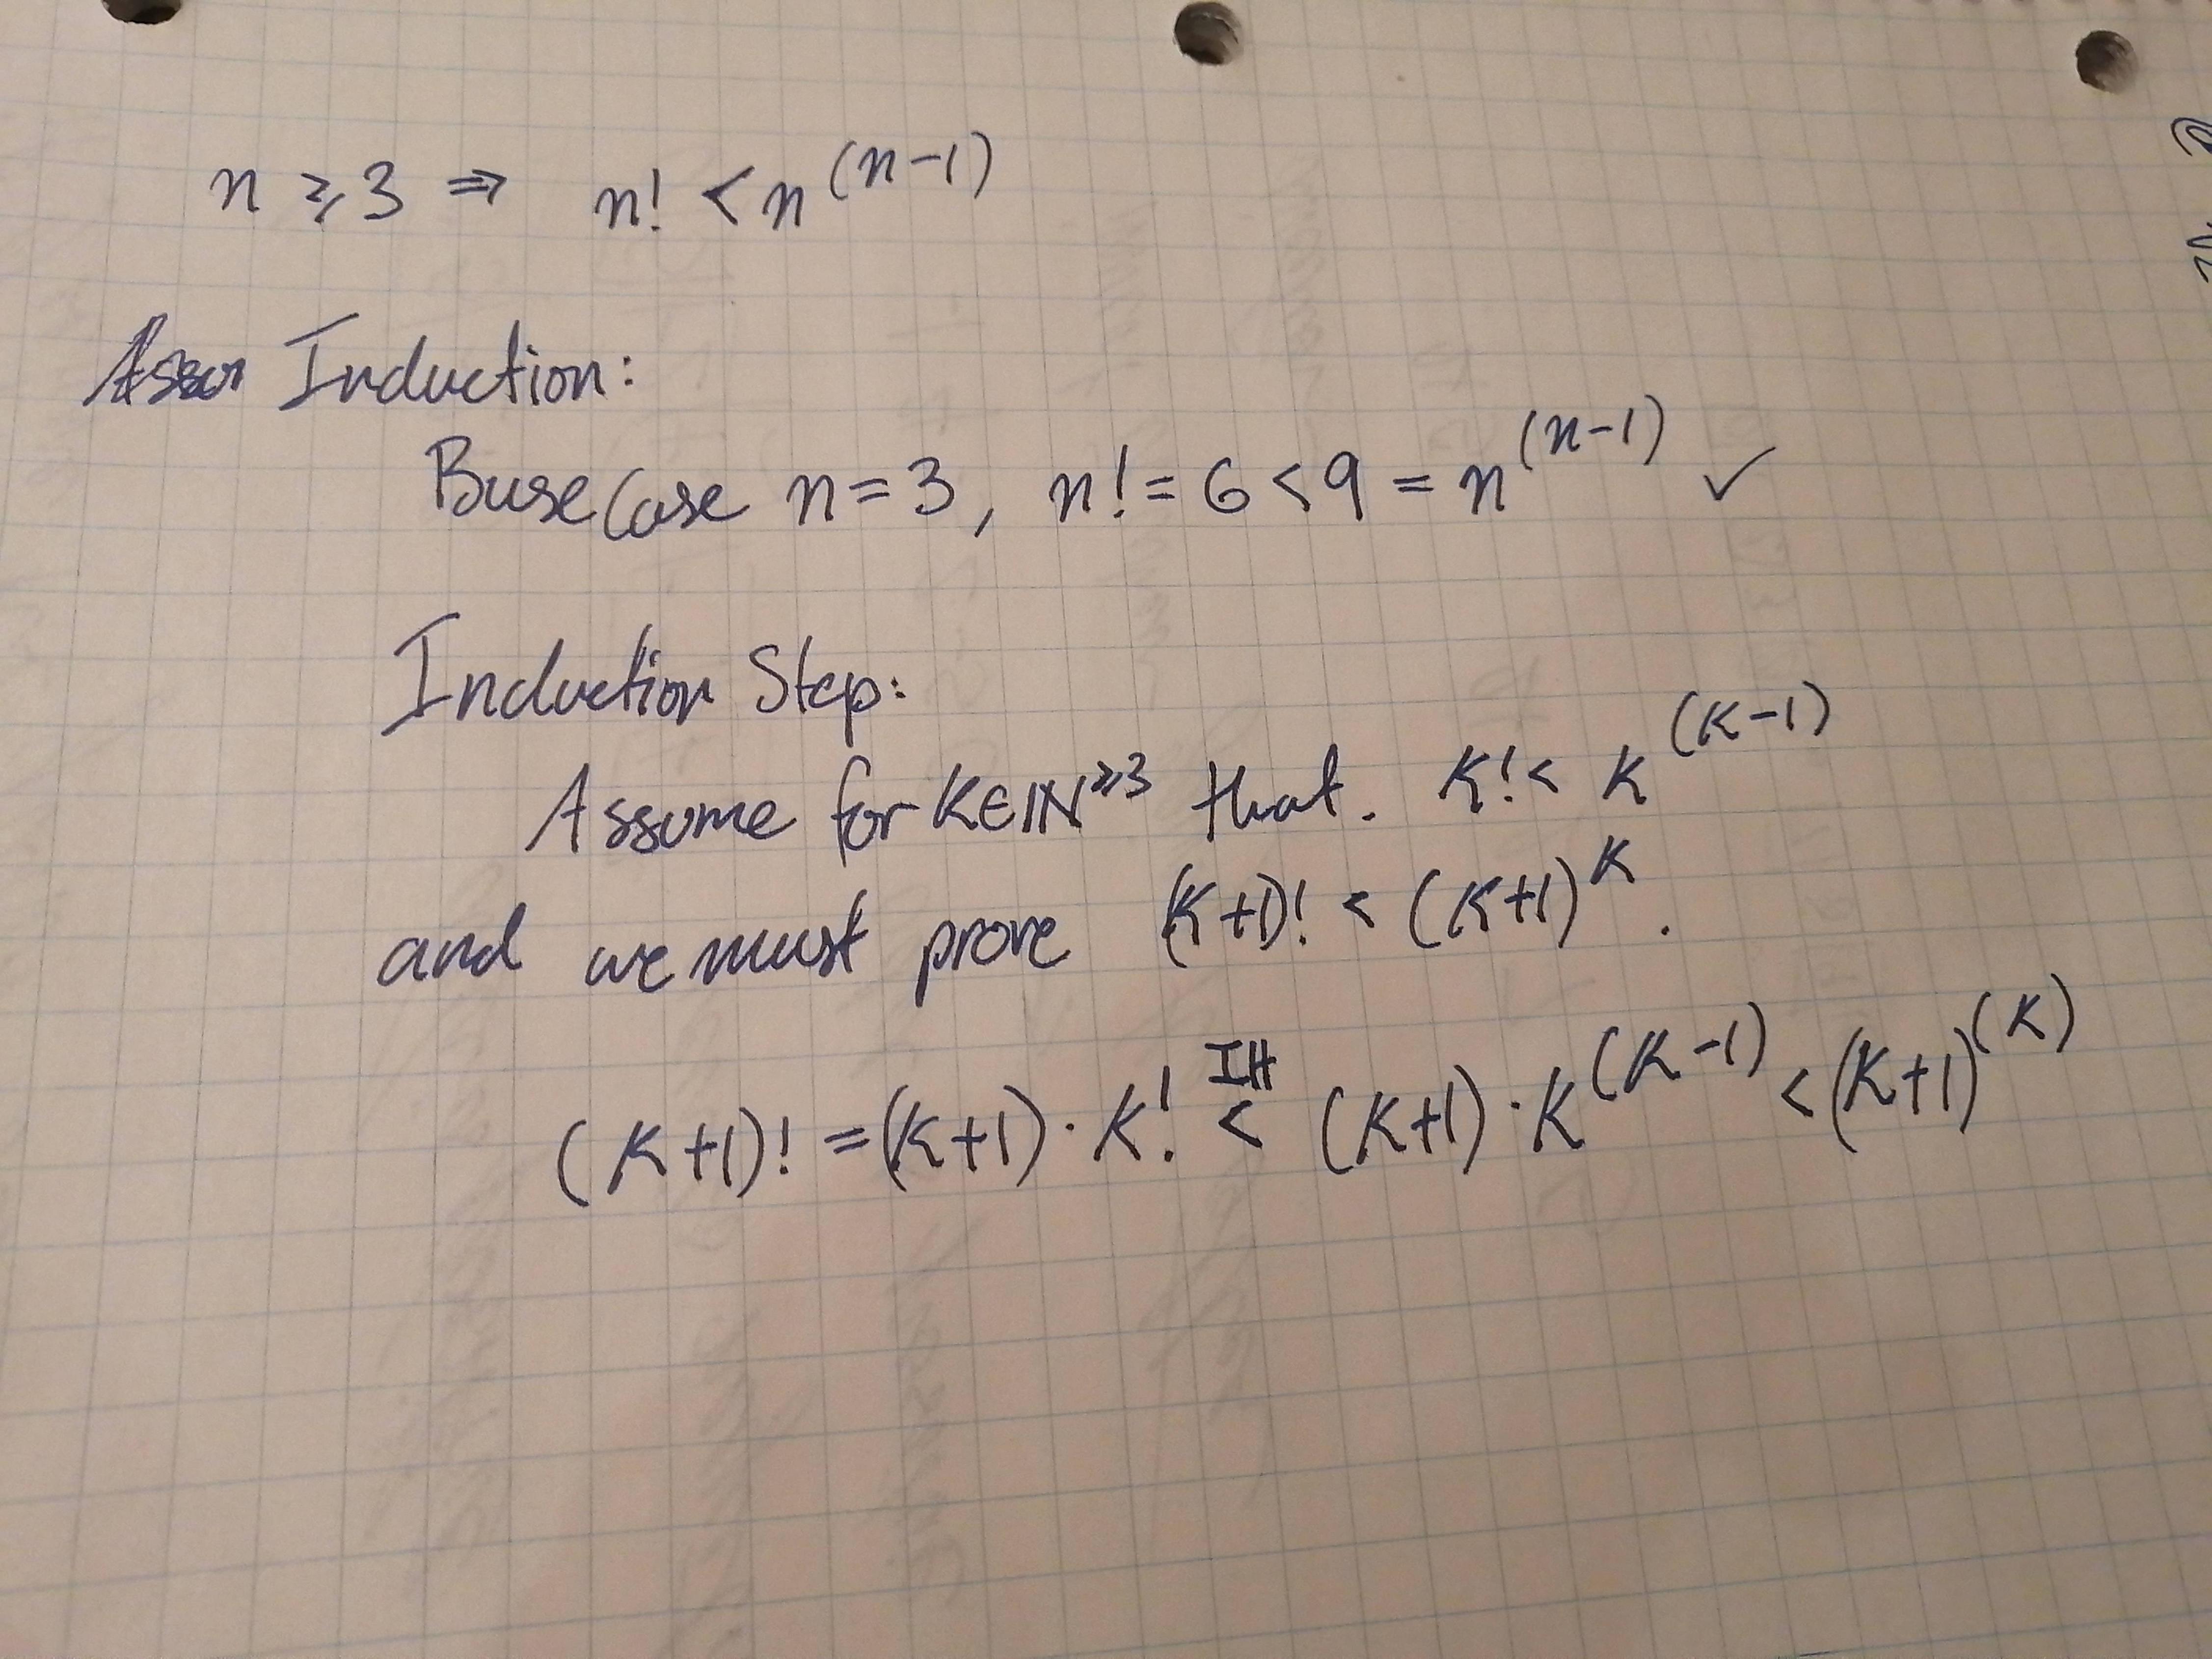 n ⩾ 3 ⇒ n! < n^(n-1)
Induction:
Base Case n = 3, n! = 6 < 9 = n^(n-1) ✓
Induction Step:
Assume for K ∈ ℕ^⩾3 that. K! < K^(K-1)
and we must prove (K+1)! < (K+1)^K.
(K+1)! = (K+1) · K! <^IH (K+1) · K^(K-1) < (K+1)^(K)